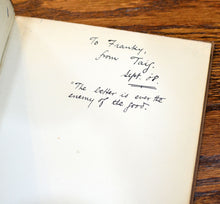 To Franky,
from Tay.
Sept. 58.
"The better is ever the
enemy of the good.